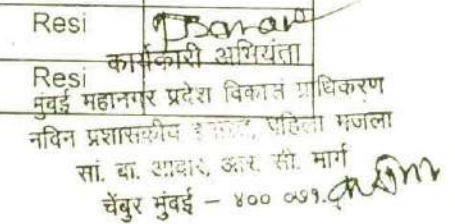 Resi
कार्यकारी अभियंता
Resi
मुंबई महानगर प्रदेश विकास प्राधिकरण
नविन प्रशासकीय इमारत, पहिला मजला
सां. बा. आवार, आर. सी. मार्ग
चेंबुर मुंबई - ४०० ०७१.